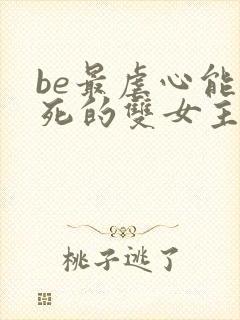 be最虐心能
死的雙女主
桃子逃了